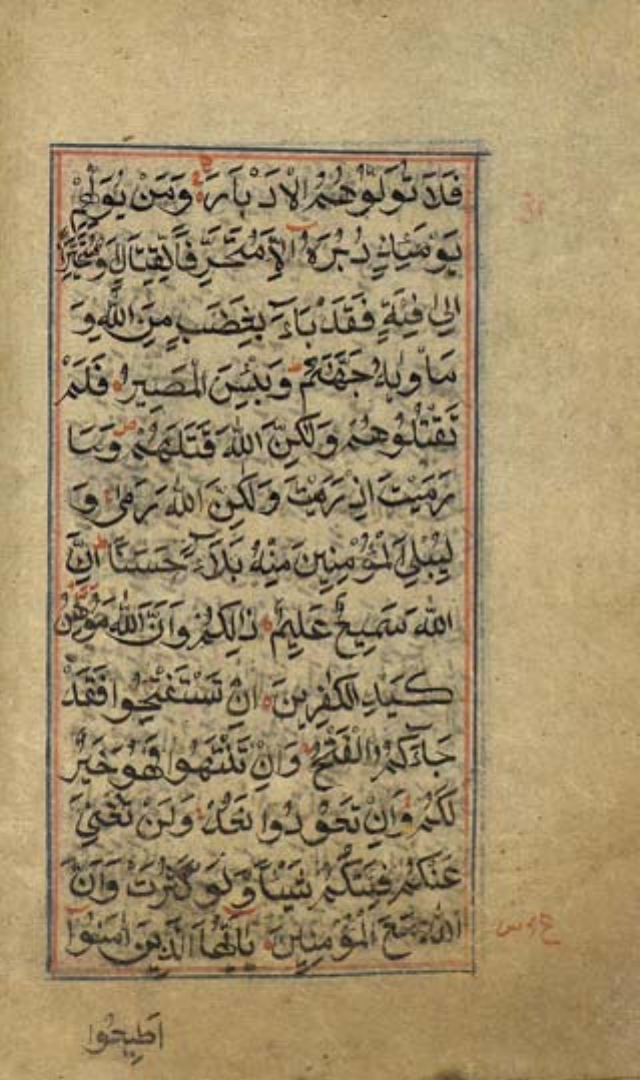 فَلَا تُوَلُّوهُمُ الْاَدْبَارَ وَمَنْ يُوَلِّهِمْ
يَوْمَئِذٍ دُبُرَهُ اِلَّا مُتَحَرِّفًا لِقِتَالٍ اَوْ مُتَحَيِّزًا
اِلٰى فِئَةٍ فَقَدْ بَاءَ بِغَضَبٍ مِنَ اللّٰهِ وَ
مَاْوٰيهُ جَهَنَّمُ وَبِئْسَ الْمَصِيرُ فَلَمْ
تَقْتُلُوهُمْ وَلٰكِنَّ اللّٰهَ قَتَلَهُمْ وَمَا
رَمَيْتَ اِذْ رَمَيْتَ وَلٰكِنَّ اللّٰهَ رَمٰى وَ
لِيُبْلِيَ الْمُؤْمِنِينَ مِنْهُ بَلَاءً حَسَنًا اِنَّ
اللّٰهَ سَمِيعٌ عَلِيمٌ ذٰلِكُمْ وَاَنَّ اللّٰهَ مُوهِنُ
كَيْدِ الْكٰفِرِينَ اِنْ تَسْتَفْتِحُوا فَقَدْ
جَاءَكُمُ الْفَتْحُ وَاِنْ تَنْتَهُوا فَهُوَ خَيْرٌ
لَكُمْ وَاِنْ تَعُودُوا نَعُدْ وَلَنْ تُغْنِيَ
عَنْكُمْ فِئَتُكُمْ شَيْئًا وَلَوْ كَثُرَتْ وَاَنَّ
اللّٰهَ مَعَ الْمُؤْمِنِينَ يَاَيُّهَا الَّذِينَ اٰمَنُوا
اَطِيعُوا